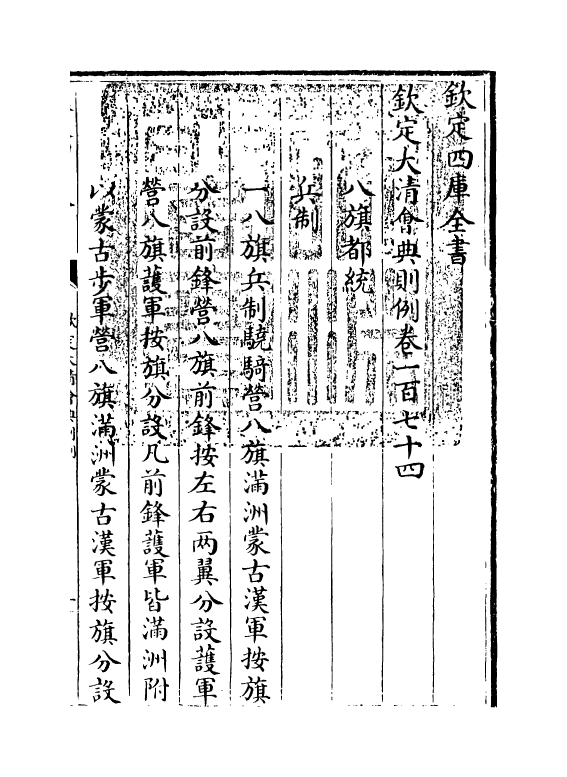 欽定四庫全書
欽定大清會典則例卷一百七十四
八旗都統
兵制
一八旗兵制驍騎營八旗滿洲蒙古漢軍按旗
分設前鋒營八旗前鋒按左右两翼分設䕶軍
營八旗䕶軍按旗分設凡前鋒䕶軍皆滿洲附
以蒙古步軍營八旗滿洲蒙古漢軍按旗分設